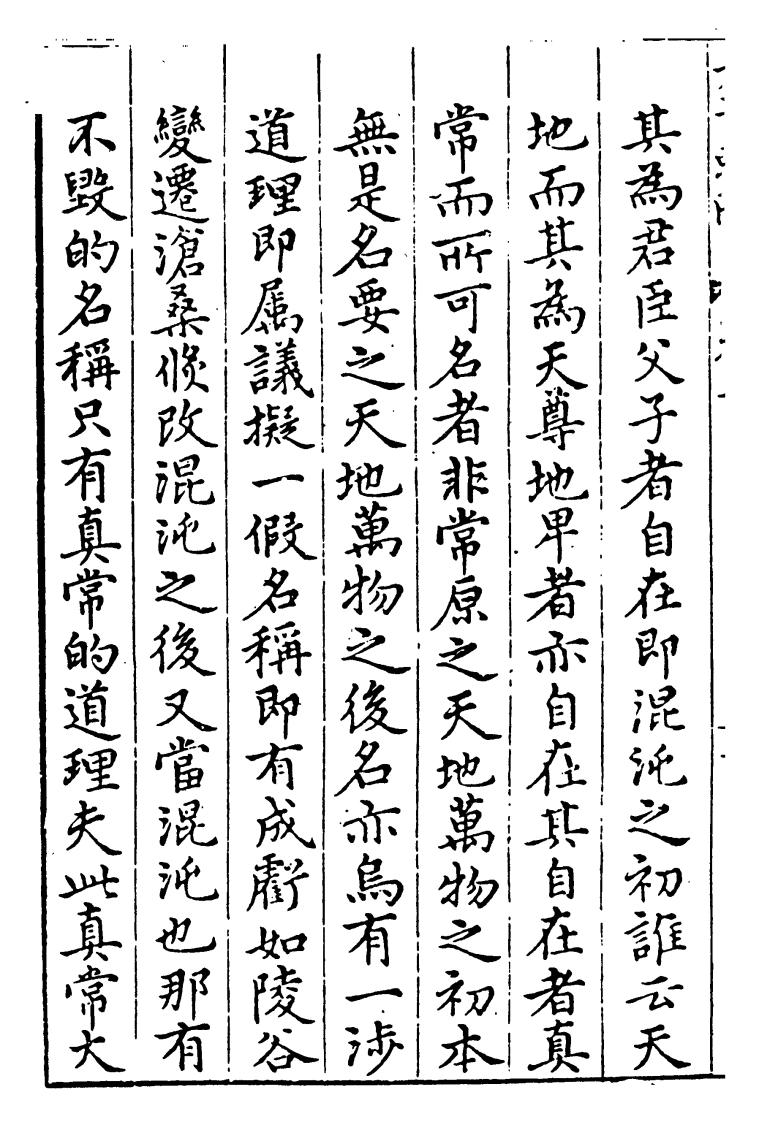 其為君臣父子者自在即混沌之初誰云天
地而其為天尊地卑者亦自在其自在者真
常而所可名者非常原之天地萬物之初本
無是名要之天地萬物之後名亦烏有一涉
道理即属議擬一假名稱即有成虧如陵谷
變遷滄桑倏改混沌之後又當混沌也那有
不毀的名稱只有真常的道理夫此真常大